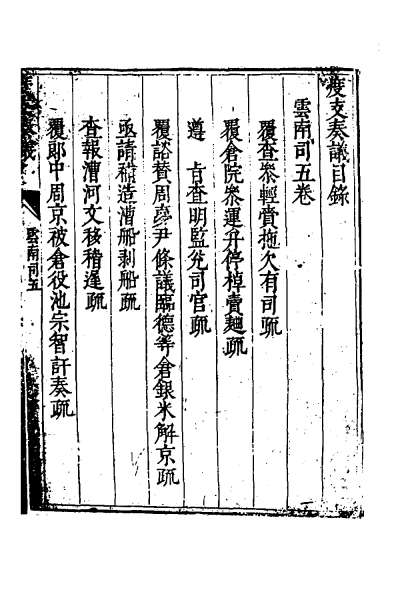 度支奏議目錄
雲南司五卷
覆查叅輕賫拖欠有司疏
覆倉院叅運弁停棹賣麵疏
遵　旨查明監兊司官疏
覆諮賛周夢尹條議臨德等倉銀米解京疏
亟請緝造漕船剥船疏
查報漕河文移稽遲疏
覆郎中周京被倉役池宗智訐奏疏
雲南司五